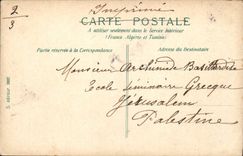 2/3
Imprimé
CARTE POSTALE
A utiliser seulement dans le Service Intérieur
(France, Algérie et Tunisie)
Partie réservée à la Correspondance
Adresse du Destinataire
Monsieur Archimède
Ecole Séminaire Grecque
Jérusalem
Palestine